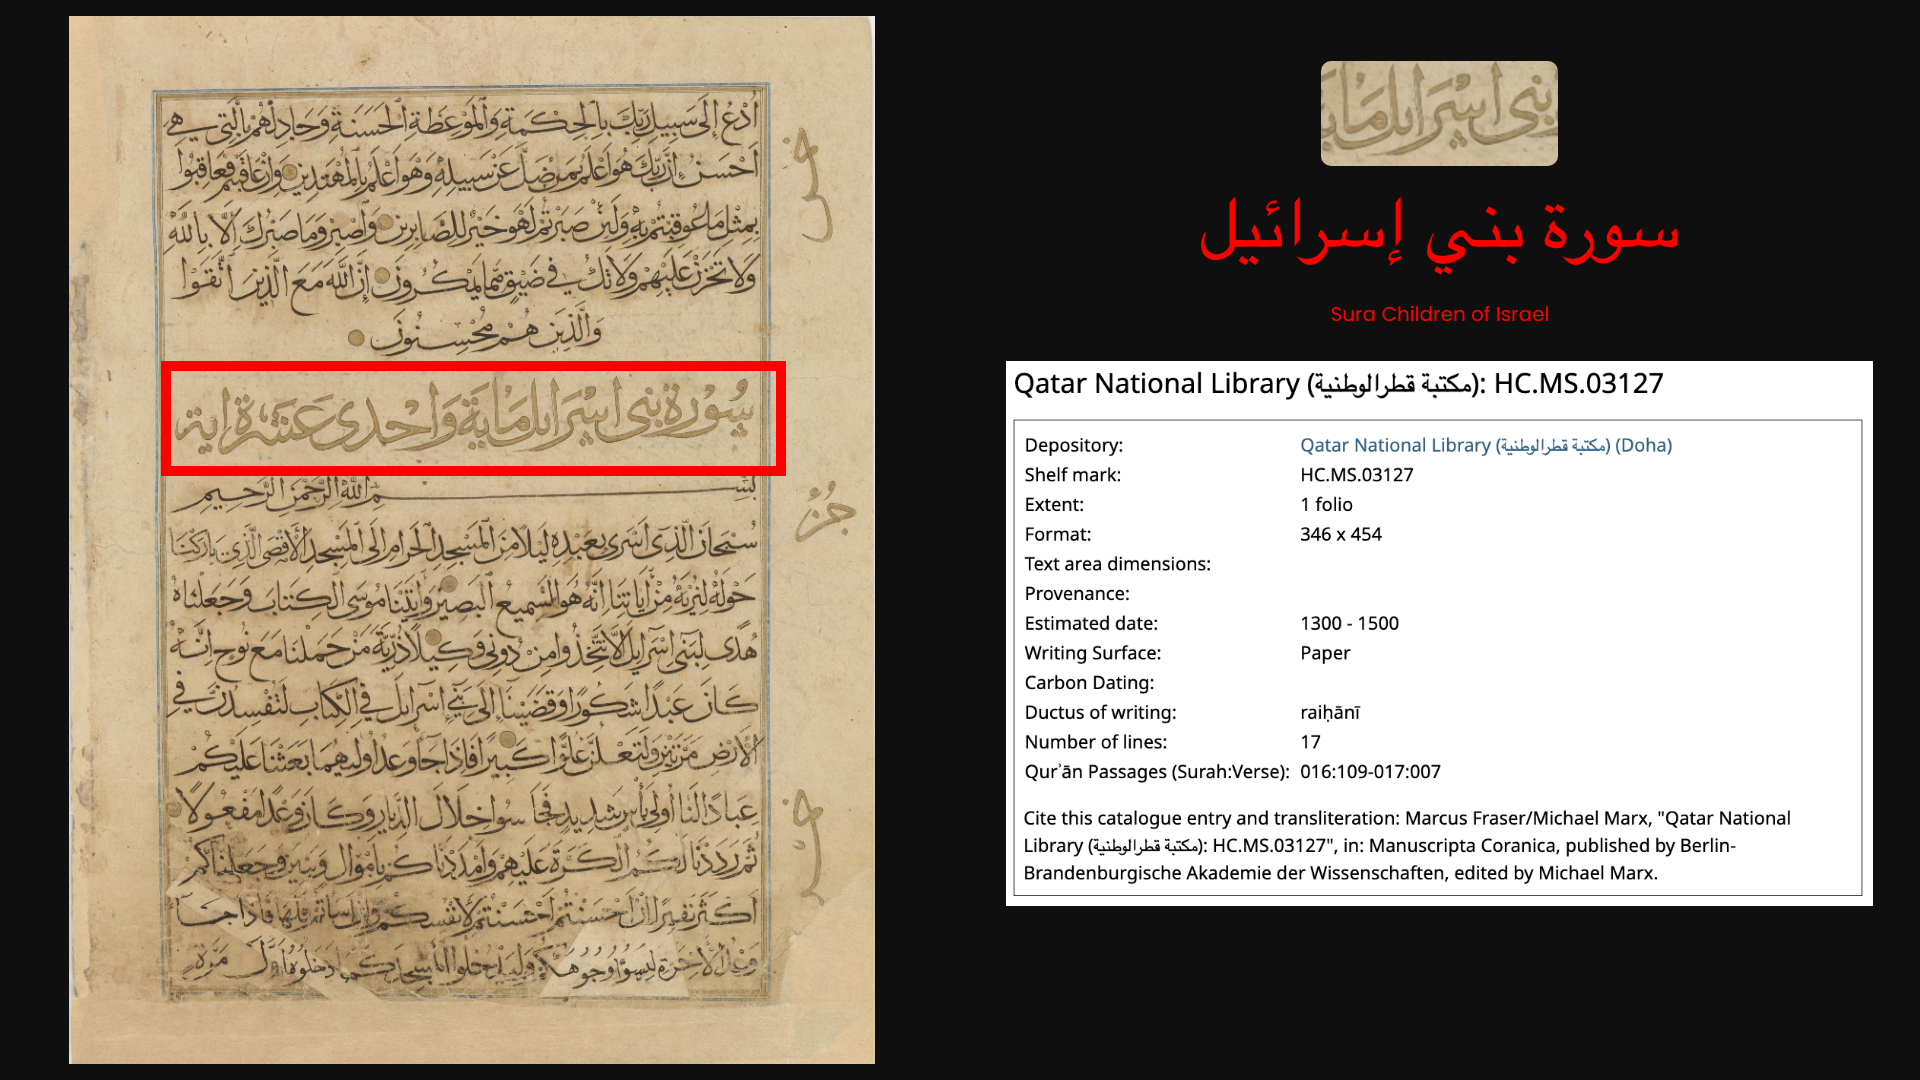 اُدْعُ إِلَى سَبِيلِ رَبِّكَ بِالْحِكْمَةِ وَالْمَوْعِظَةِ الْحَسَنَةِ وَجَادِلْهُمْ بِالَّتِي هِيَ
اَحْسَنُ اِنَّ رَبَّكَ هُوَ اَعْلَمُ بِمَنْ ضَلَّ عَنْ سَبِيلِهِ وَهُوَ اَعْلَمُ بِالْمُهْتَدِينَ وَاِنْ عَاقَبْتُمْ فَعَاقِبُوا
بِمِثْلِ مَا عُوقِبْتُمْ بِهِ وَلَئِنْ صَبَرْتُمْ لَهُوَ خَيْرٌ لِلصَّابِرِينَ وَاصْبِرْ وَمَا صَبْرُكَ اِلَّا بِاللَّهِ
وَلَا تَحْزَنْ عَلَيْهِمْ وَلَا تَكُ فِي ضَيْقٍ مِمَّا يَمْكُرُونَ اِنَّ اللَّهَ مَعَ الَّذِينَ اتَّقَوْا
وَالَّذِينَ هُمْ مُحْسِنُونَ
سُوْرَة بنى اسْرَايل مَايَة وَاحْدى عَشَرة اية
بِسْمِ اللَّهِ الرَّحْمَنِ الرَّحِيمِ
سُبْحَانَ الَّذِي اَسْرَى بِعَبْدِهِ لَيْلًا مِنَ الْمَسْجِدِ الْحَرَامِ اِلَى الْمَسْجِدِ الْاَقْصَى الَّذِي بَارَكْنَا
حَوْلَهُ لِنُرِيَهُ مِنْ اَيَاتِنَا اِنَّهُ هُوَ السَّمِيعُ الْبَصِيرُ وَاَتَيْنَا مُوسَى الْكِتَابَ وَجَعَلْنَاهُ
هُدًى لِبَنِي اِسْرَآيلَ اَلَّا تَتَّخِذُوا مِنْ دُونِي وَكِيلًا ذُرِّيَّةَ مَنْ حَمَلْنَا مَعَ نُوحٍ اِنَّهُ
كَانَ عَبْدًا شَكُورًا وَقَضَيْنَا اِلَى بَنِي اِسْرَآيلَ فِي الْكِتَابِ لَتُفْسِدُنَّ فِي
الْاَرْضِ مَرَّتَيْنِ وَلَتَعْلُنَّ عُلُوًّا كَبِيرًا فَاِذَا جَا وَعْدُ اُولٰيهُمَا بَعَثْنَا عَلَيْكُمْ
عِبَادًا لَنَا اُولِي بَأْسٍ شَدِيدٍ فَجَاسُوا خِلَالَ الدِّيَارِ وَكَانَ وَعْدًا مَفْعُولًا
ثُمَّ رَدَدْنَا لَكُمُ الْكَرَّةَ عَلَيْهِمْ وَاَمْدَدْنَاكُمْ بِاَمْوَالٍ وَبَنِينَ وَجَعَلْنَاكُمْ
اَكْثَرَ نَفِيرًا اِنْ اَحْسَنْتُمْ اَحْسَنْتُمْ لِاَنْفُسِكُمْ وَاِنْ اَسَاتُمْ فَلَهَا فَاِذَا جَا
وَعْدُ الْاَخِرَةِ لِيَسُوؤُا وُجُوهَكُمْ وَلِيَدْخُلُوا الْمَسْجِدَ كَمَا دَخَلُوهُ اَوَّلَ مَرَّةٍ
جُزْ
بنى اسْرَايل مَا
سورة بني إسرائيل
Sura Children of Israel
Qatar National Library (مكتبة قطرالوطنية): HC.MS.03127
Depository: Qatar National Library (مكتبة قطرالوطنية) (Doha)
Shelf mark: HC.MS.03127
Extent: 1 folio
Format: 346 x 454
Text area dimensions:
Provenance:
Estimated date: 1300 - 1500
Writing Surface: Paper
Carbon Dating:
Ductus of writing: raiḥānī
Number of lines: 17
Qurʾān Passages (Surah:Verse): 016:109-017:007
Cite this catalogue entry and transliteration: Marcus Fraser/Michael Marx, "Qatar National
Library (مكتبة قطرالوطنية): HC.MS.03127", in: Manuscripta Coranica, published by Berlin-
Brandenburgische Akademie der Wissenschaften, edited by Michael Marx.